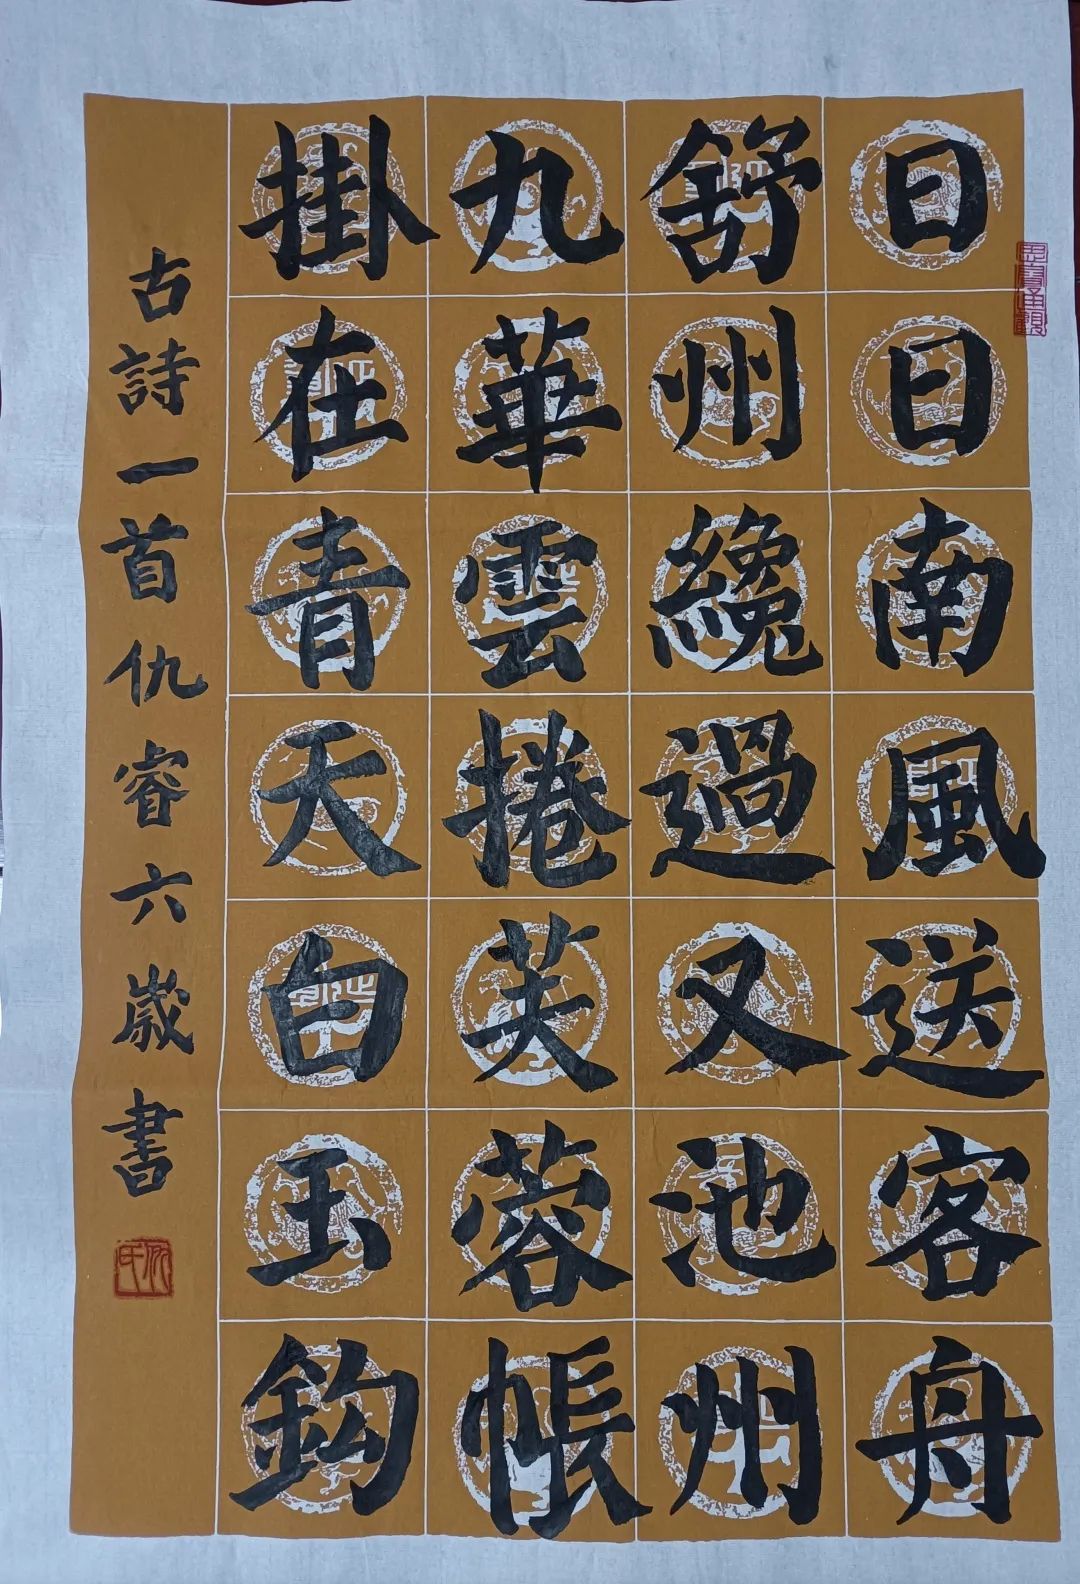 日日南風送客舟
舒州纔過又池州
九華雲捲芙蓉帳
掛在青天白玉鈎
古詩一首仇睿六歲書
仇氏